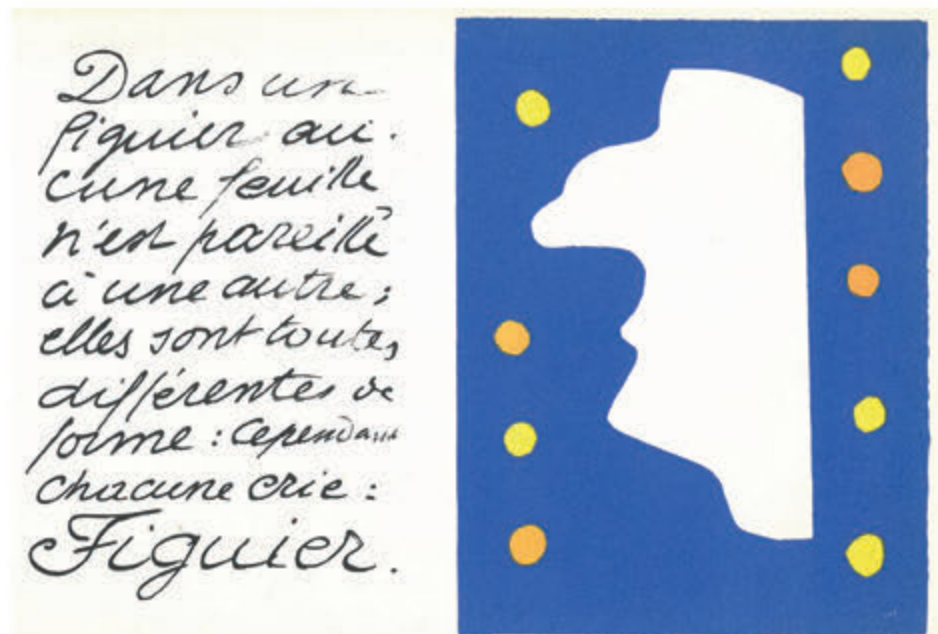 Dans un
figuier au-
cune feuille
n'est pareille
à une autre ;
elles sont toutes
différentes de
forme : cependant
chacune crie :
Figuier.